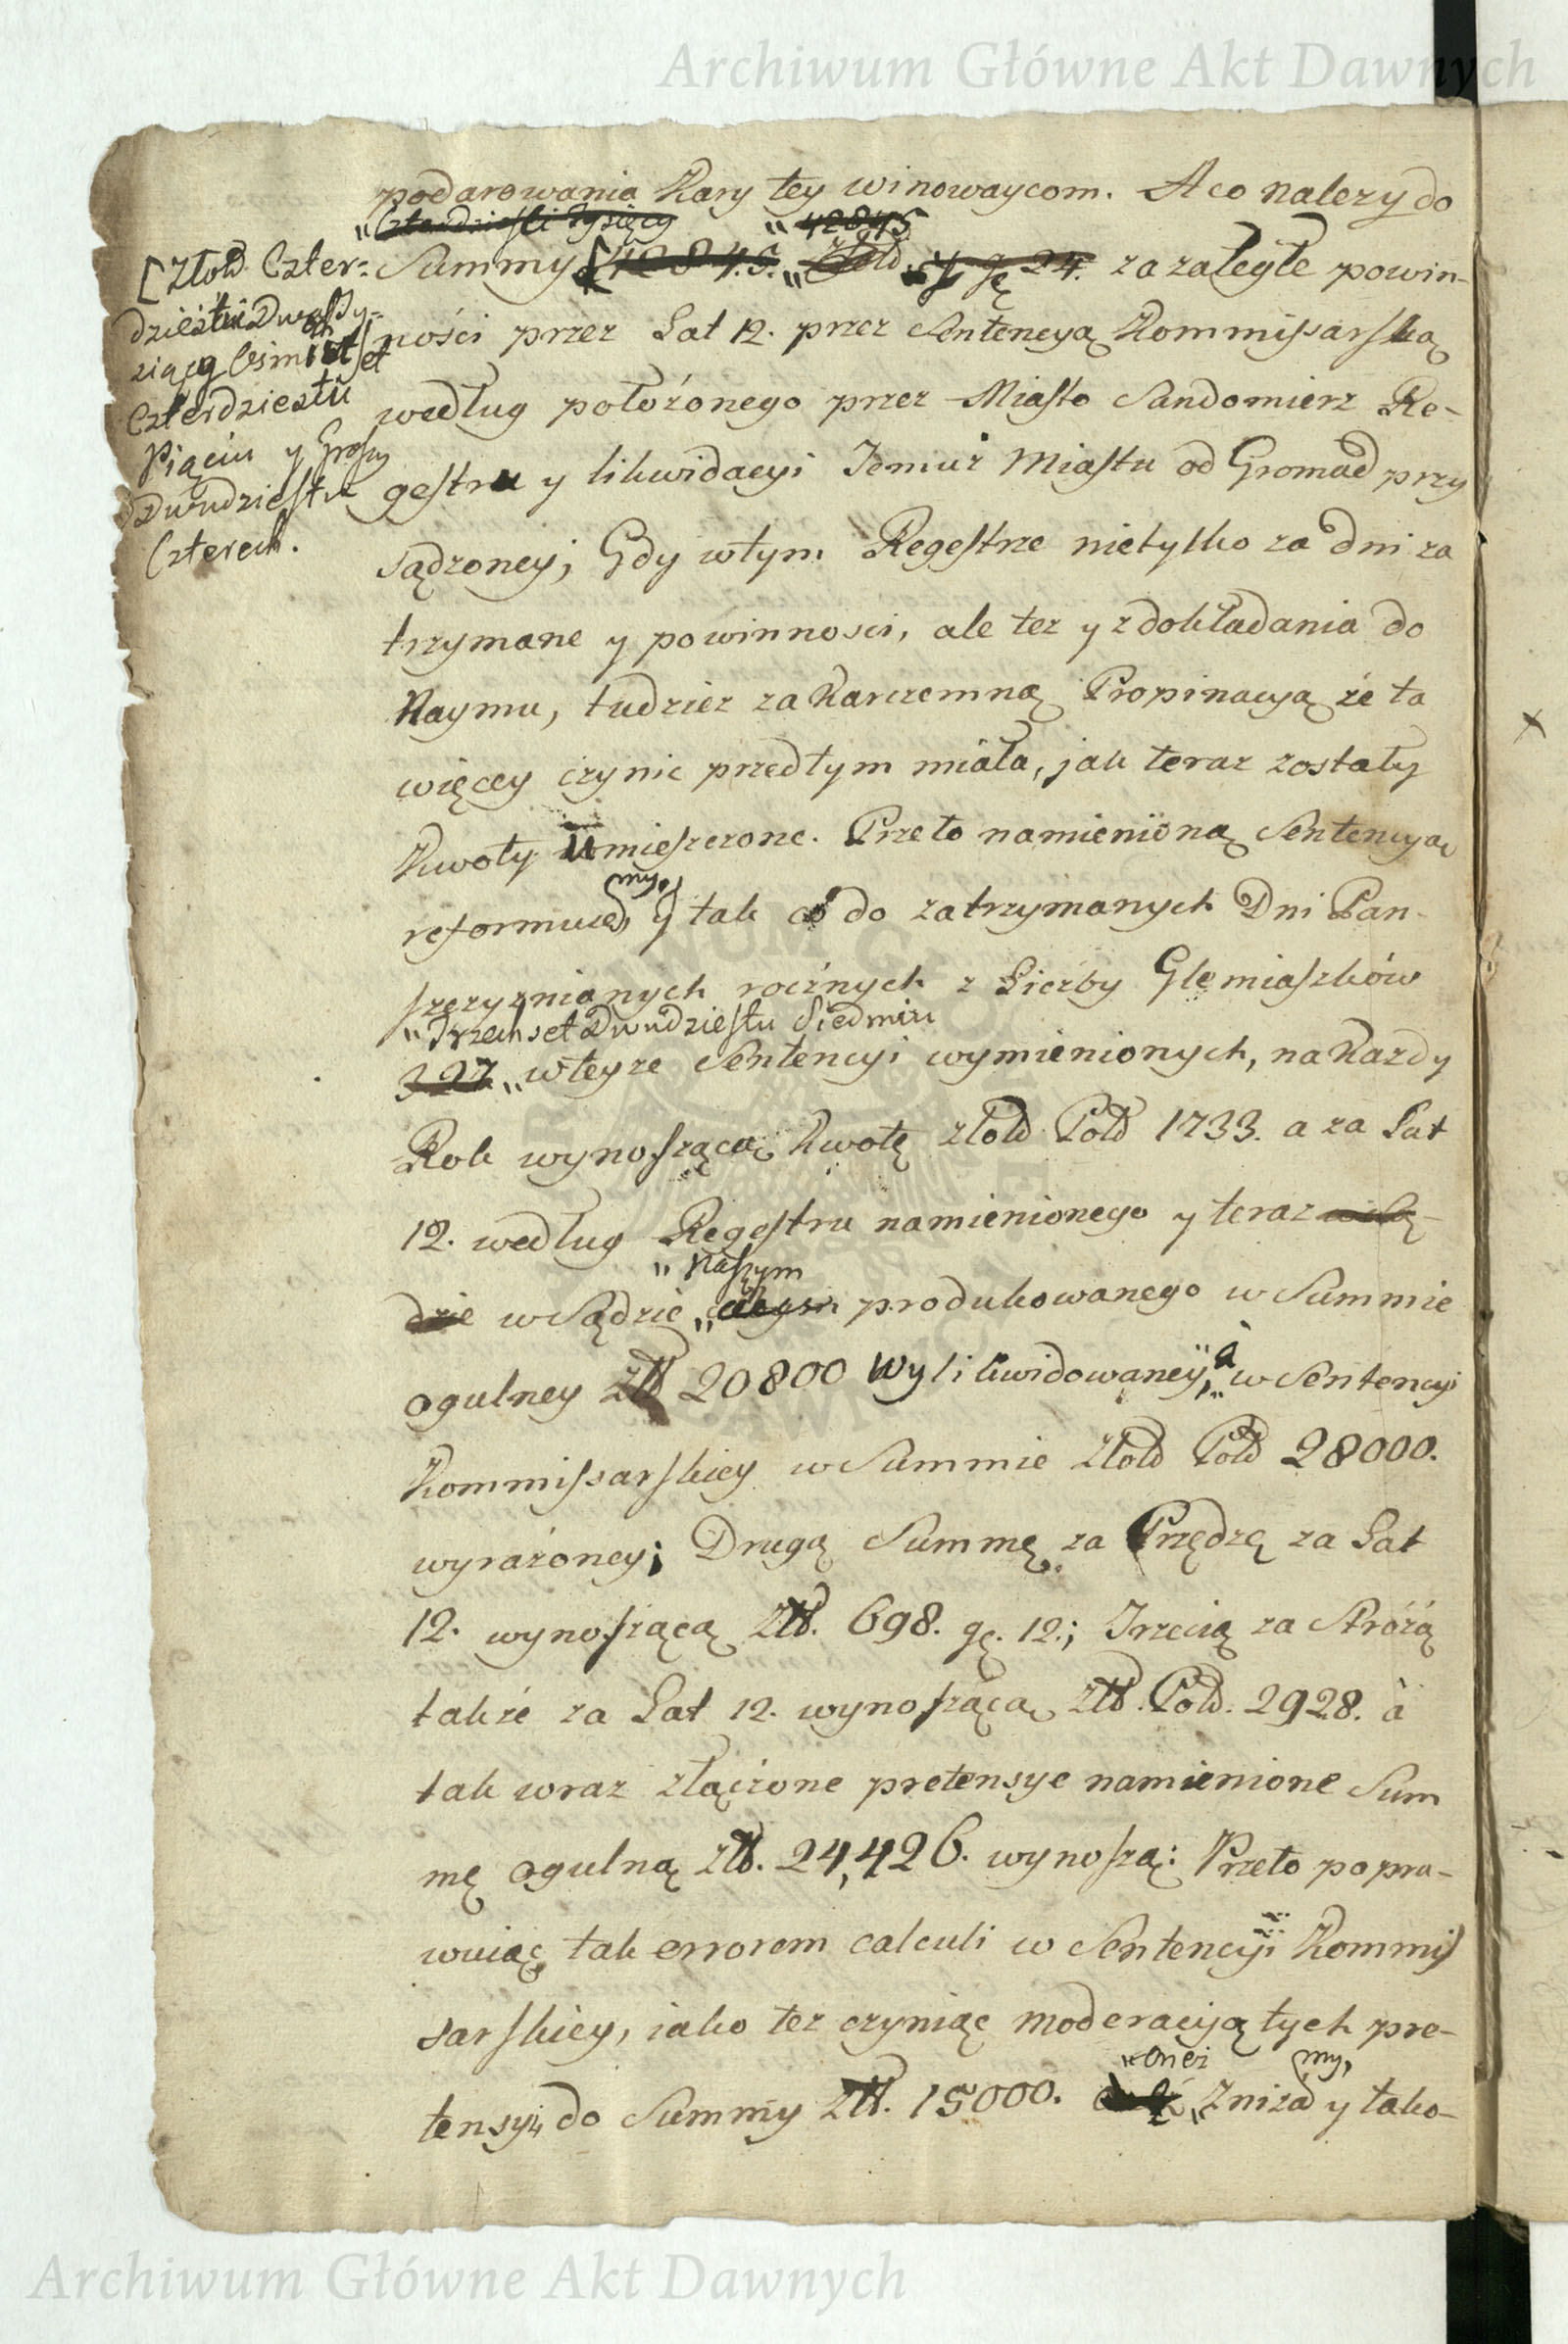 Archiwum Główne Akt Dawnych
podarowania Kary tey winowaycom. A co nalezy do
„Czterdziesti Tysięcy „42845
Summy [42845. „Złotd. y gę 24. za zaległe powin-
[Złotd Czter=
dziestu Dwa Ty-
siącg Osmiuset
Czterdziestu
Piąciu y Groszy
Dwudziestu
Czterech.
ności przez Lat 12. przez Sentencyą Kommissarską
według położonego przez Miasto Sandomierz Re-
gestru y likwidacyi Temuż Miastu od Gromad przy
sądzoney; Gdy wtym Regestrze nietylko za dni za
trzymane y powinnosci, ale tez y z dokładania do
Naymu, tudziez za Karczemną Propinacyą że ta
więcey czynic przedtym miała, jak teraz zostały
Kwoty umieszczone. Przeto namienioną Sentencyą
(my,)
reformuied y tak co do zatrzymanych Dni Pan-
szczyznianych rocznych z Liczby Glemiaszków
„Trzechset Dwudziestu Siedmiu
327 „wteyze Sentencyi wymienionych, na Kazdy
Rok wynoszącą Kwotę złotd Pold 1733. a za Lat
12. według Regestru namienionego y teraz
„Naszym
dzie w Sądzie „ produkowanego w Summie
ogulney Złł 20800 Wylikwidowaney, „à w Sentencyi
Kommissarskiey w Summie Złotd Pold 28000.
wyrażoney; Drugą Summę za Przędzę za Lat
12. wynoszącą Złł. 698. gę. 12.; Trzecią za Stróżą
takżé za Lat 12. wynoszącą Złł. Pold. 2928. à
tak wraz złączone pretensye namienione Sum
mę ogulną Złł. 24,426. wynoszą: Przeto popra-
wuiąc tak errorem calculi w Sentencyi Kommis
sarskiey, iako tez czyniąc moderacyą tych pre-
„Oneż (my,
tensyi do Summy Złł. 15000. „Znizad y tako-
Archiwum Główne Akt Dawnych